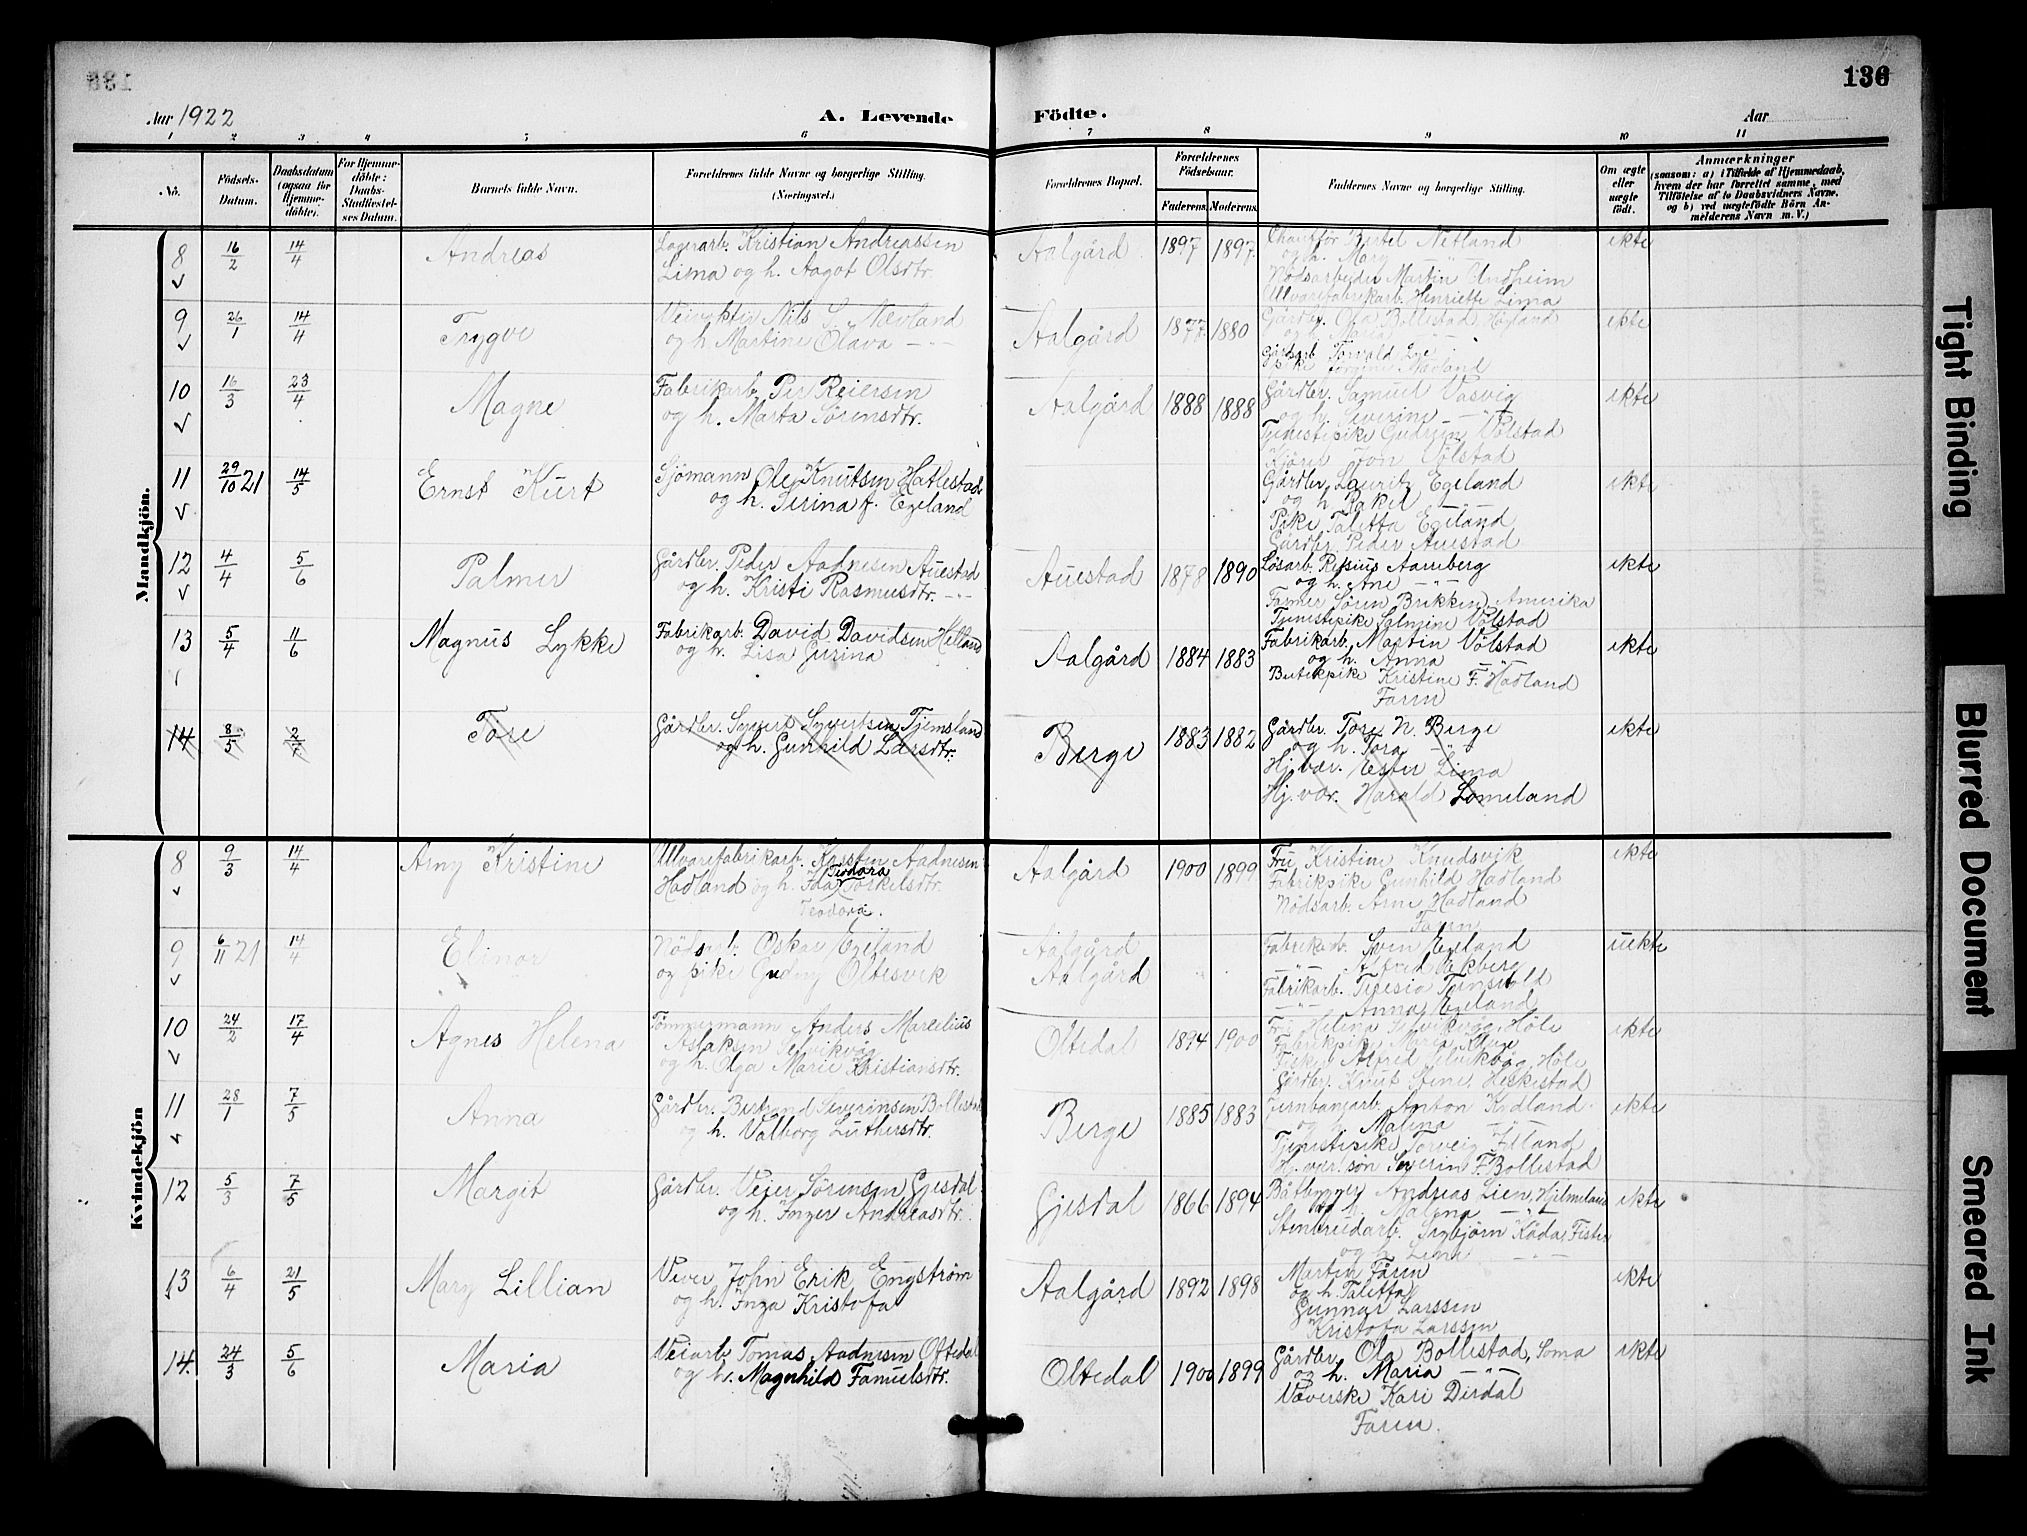 136
Aar 1922
A. Levende Födte.
Aar
1 2 3 4 5 6 7 8 9 10 11
No.
Födsels-Datum.
Daabsdatum (ogsaa for Hjemmedöbte).
For Hjemmedöbte: Daabs-Stadfæstelses Datum.
Barnets fulde Navn.
Forældrenes fulde Navne og borgerlige Stilling. (Næringsvei.)
Forældrenes Bopæl.
Forældrenes Födselsaar.
Faderens. Moderens.
Faddernes Navne og borgerlige Stilling.
Om ægte eller uægte födt.
Anmærkninger
(saasom: a) i Tilfælde af Hjemmedaab, hvem der har forrettet samme, med Tilföielse af to Daabsvidners Navne, og b) ved uægtefödte Börn Anmelderens Navn m. V.)
Mandkjön.
8 16/2 14/4 Andreas
Lagerarb. Kristian Andreassen
Lima og h. Aagot Olsdtr.
Aalgård 1897 1897
Chaufför Bertel Netland
og h. Mary -"-
Nödsarbeider Martin Undheim
Ullvarefabrikarb. Henriette Lima
ekte
9 26/1 14/4 Trygve
Veivokter Nils S. Nevland
og h Martine Olava -"-
Aalgård 1877 1880
Gårdbr. Ola Bollestad Høyland
Gårdsarb. Torvald
ekte
10 16/3 23/4 Magne
Fabrikarb. Per Reiersen
og h. Marta Sörensdtr.
Aalgård 1888 1888
Gårdbr. Samuel Vasvig
og h. Severine -"-
Tjenestepike Gudrun Völstad
Kjörer Jon Völstad
ekte
11 29/10 21 14/5 Ernst Kurt
Sjömann Ole Knutsen Hatlestad
og h. Serina f. Egeland
Gårdbr. Lauritz Egeland
og h. Rakel
Pike Taletta Egeland
Gårdbr. Peder Auestad
ekte
12 4/4 5/6 Palmer
Gårdbr. Peder Aadnesen Auestad
og h. Kristi Rasmusdtr. -"-
Auestad 1878 1890
Lösarb. Refsius Aamberg
og h. Ane -"-
Farmer Sören Brekken, Amerika
Tjenestepike Salmine Völstad
ekte
13 5/4 11/6 Magnus Lykke
Fabrikarb. David Davidsen Helland
og h. Lisa Gurina
Aalgård 1884 1883
Fabrikarb. Martin Völstad
og h. Anna
Butikpike Kristine F. Hadland
Faren
ekte
14 8/5 2/7 Tore
Gårdbr. Syvert Syvertsen Tjemsland
og h. Gunhild Larsdtr.
Berge 1883 1882
Gårdbr. Tore N. Berge
og h. Tora -"-
Hj.vær. Ester Lima
Hj.vær. Harald Lomeland
ekte
Kvindekjön
8 9/3 14/4 Arny Kristine
Ullvarefabrikarb. Karsten Aadnesen
Hadland og h. Ida Teodora Torkelsdtr.
Teodora.
Aalgård 1900 1899
Fru Kristine Knudsvik
Fabrikpike Gunhild Hadland
Nödsarb. Arne Hadland
Faren
ekte
9 6/11 21 14/4 Elinor
Nödsarb. Oskar Egeland
og pike Gudny Oltesvik
Aalgård
Aalgård
Fabrikarb. Sven Egeland
-"- Alfred Aksberg
Fabrikarb. Teresia Tunsvold
-"- Anna Egeland
uekte
10 24/2 17/4 Agnes Helena
Tömmermann Anders Marelius
Aslaksen Selvikvåg
og h. Olga Marie Kristiansdtr.
Oltedal 1894 1900
Fru Helena Selvikvåg, Höle
Fabrikpike Maria
Fisker Alfred Selvikvåg, Höle
Gårdbr. Knut Stene, Heskestad
ekte
11 28/1 7/5 Anna
Gårdbr. Bertrand Severinsen Bollestad
og h. Valborg Luthersdtr.
Berge 1885 1883
Jernbanearb. Anton Kydland
og h. Malena -"-
Tjenestepike Torveig
Hj. vær. sön Severin F. Bollestad
ekte
12 5/3 7/5 Margit
Gårdbr. Veier Sörensen Gjesdal
og h. Inger Andreasdtr.
Gjesdal 1866 1894
Båtbygger Andreas Lien, Hjelmeland
og h. Malena -"-
Stenbruddarb. Torbjörn Kåda, Fister
og h. Lena -"-
ekte
13 6/4 21/5 Mary Lillian
Vever John Erik Engström
og h. Inga Kristofa
Aalgård 1892 1898
Martin Fåren
og h. Taletta
Gunnar Larssen
Kristofa Larssen
ekte
14. 24/3 5/6 Maria
Veiarb. Tomas Aadnesen Oltedal
og h. Magnhild Famuelsdtr.
Oltedal 1900 1899
Gårdbr. Ola Bollestad, Soma
og h. Maria -"-
Væverske Kari Dirdal
Faren.
ekte
Tight Binding
Blurred Document
Smeared Ink